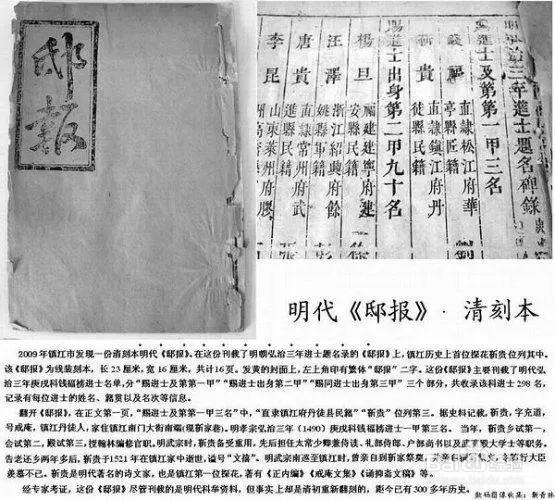 邸報
明弘治三年進士題名碑錄
賜進士及第第一甲三名
錢福 直隸松江府華
亭縣匠籍
靳貴 直隸鎮江府丹
徒縣民籍
賜進士出身第二甲九十名
楊旦 福建建寧府建
安縣民籍
汪澤 浙江紹興府餘
姚縣軍籍
唐貴 直隸常州府武
進縣民籍
李昆 山東萊州府膠
明代《邸报》·清刻本
2009年镇江市发现一份清刻本明代《邸报》。在这份刊载了明朝弘治三年进士题名录的《邸报》上，镇江历史上首位探花靳贵位列其中。
该《邸报》为线装刻本，长23厘米，宽16厘米，共计16页。发黄的封面上，左上角印有繁体“邸报”二字。这份《邸报》主要刊载了明代弘
治三年庚戌科钱福榜进士名单，分“赐进士及第第一甲”“赐进士出身第二甲”“赐同进士出身第三甲”三个部分，共收录该科进士298名，
记录有每位进士的姓名、籍贯以及名次等信息。
翻开《邸报》，在正文第一页，“赐进士及第第一甲三名中”，“直隶镇江府丹徒县民籍”“靳贵”位列第三。据史料记载，靳贵，字充道，
号戒庵，镇江丹徒人，家住镇江南门大街南端(现靳家巷)。明孝宗弘治三年(1490)庚戌科钱福榜进士一甲第三名。当年，靳贵乡试第一，
会试第二，殿试第三，授翰林编修官职。明武宗时，靳贵备受重用，先后担任太常少卿兼侍读、礼部侍郎、户部尚书以及武英殿大学士等职务。
告老还乡两年多后，靳贵于1521年在镇江家中逝世，谥号“文僖”。明武宗南巡至镇江时，曾亲自到靳家祭奠，并亲自
羡慕不已。靳贵是明代著名的诗文家，也是镇江第一位探花，著有《正内编》《戒庵文集》《诵抑斋文稿》等。
经专家考证，这份《邸报》尽管刊载的是明代科举资料，但事实上却是清初重新翻刻的，距今已有300多年历史。